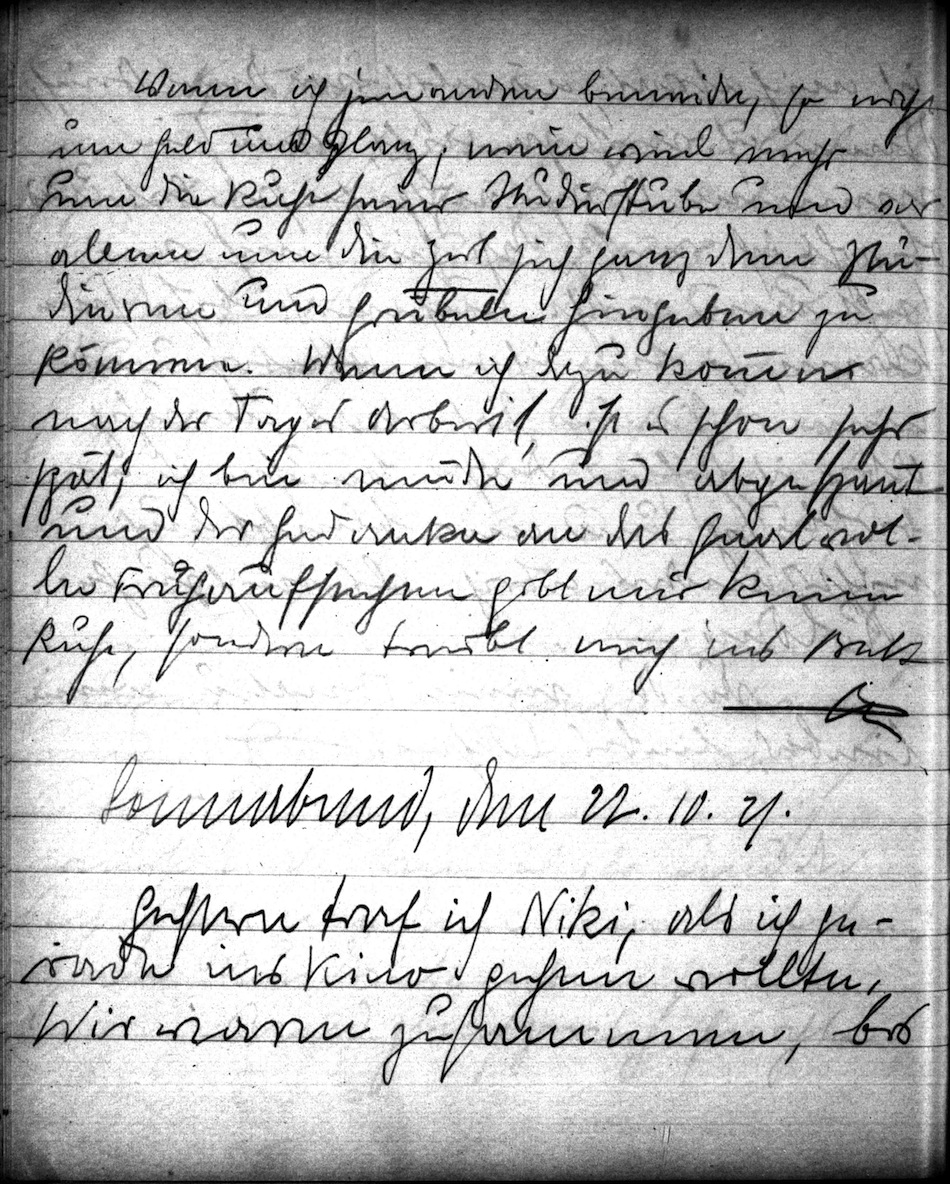 Wenn ich jemanden beneide, so nicht
um Geld und Glanz, nein viel mehr
um die Ruhe seiner Studierstube und vor
allem um die Zeit sich ganz dem Stu-
dieren und Grübeln hingeben zu
können. Wenn ich dazu komme
nach der Tages Arbeit, ist es schon sehr
spät; ich bin müde und abgespannt
und der Gedanke an das qualvol-
le Frühaufstehen gibt mir keine
Ruhe, sondern treibt mich ins Bett
Sonnabend, den 22. 10. 21.
Gestern traf ich Niki, als ich ge-
rade ins Kino gehen wollte.
Wir waren zusammen, bis